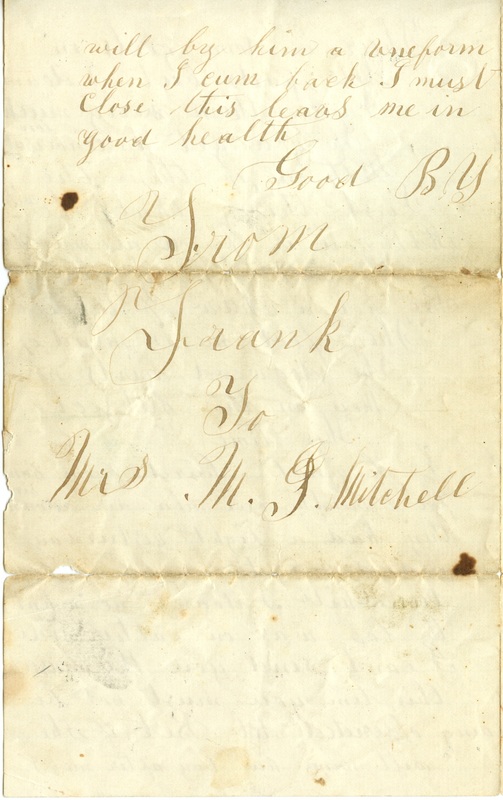 will by him a uneform
when I cum back I must
Close this leavs me in
good health
Good By
From
Frank
To
Mrs. M. J. Mitchell